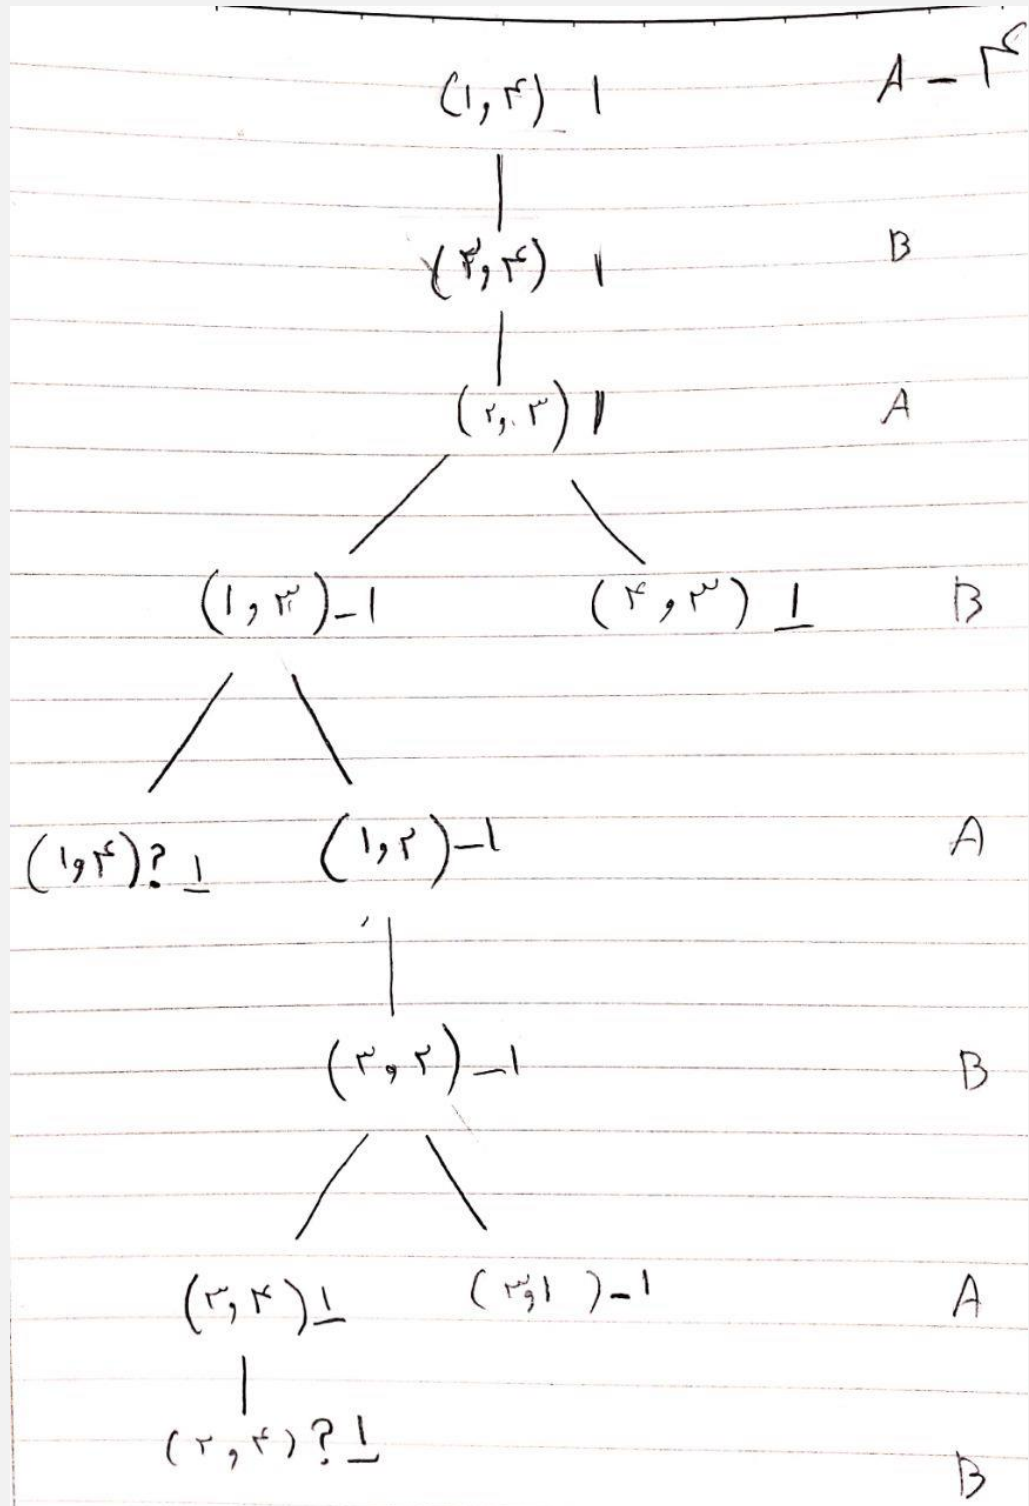 (۱,۴) -۱ A - ۴
(۲,۴) ۱ B
(۲,۳) ۱ A
(۱,۳) -۱ (۴,۳) ۱ B
(۱,۴)? ۱ (۱,۲) -۱ A
(۳,۲) -۱ B
(۳,۴) ۱ (۳,۱) -۱ A
(۲,۴)? ۱ B